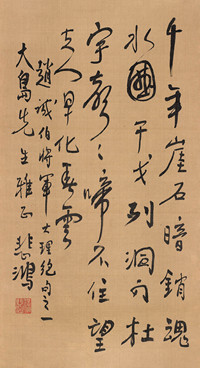 千年崖石暗銷魂
水國干戈列洞門杜
宇聲々啼不住望
夫人早化雲
趙誠伯將軍大理絕句之一
大島先生雅正 悲鴻